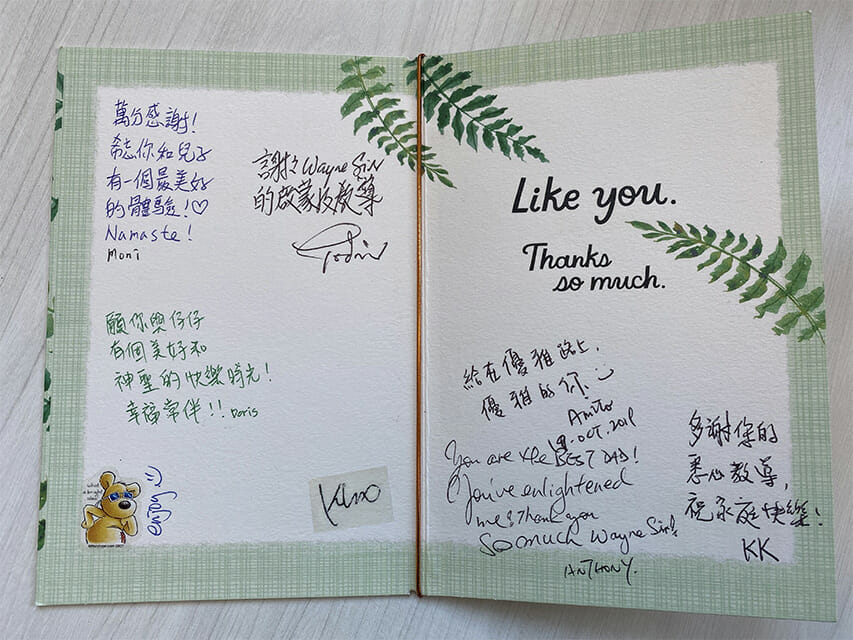 萬分感謝!
希望你和兒子
有一個最美好
的體驗!♡
Namaste!
Moni
謝謝Wayne Sir
的啟蒙及教導
願你與仔仔
有個美好和
神聖的快樂時光!
幸福常伴!! Doris
What
a bright
idea!
Like you.
Thanks
so much.
給在優雅路上,
優雅的你
Anita
OCT. 2019
You are the BEST DAD!
You've enlightened
me & Thank you
so much Wayne Sir!
ANTHONY.
多謝您的
悉心教導,
祝家庭快樂!
KK